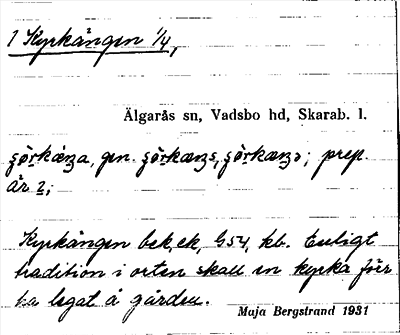 1 Kyrkängen 1/4,
Älgarås sn, Vadsbo hd, Skarab. l.
gen. prep.
är 2;
Kyrkängen bek, ek, G54, kb. Enligt
tradition i orten skall en kyrka förr
ha legat å gården.
Maja Bergstrand 1931